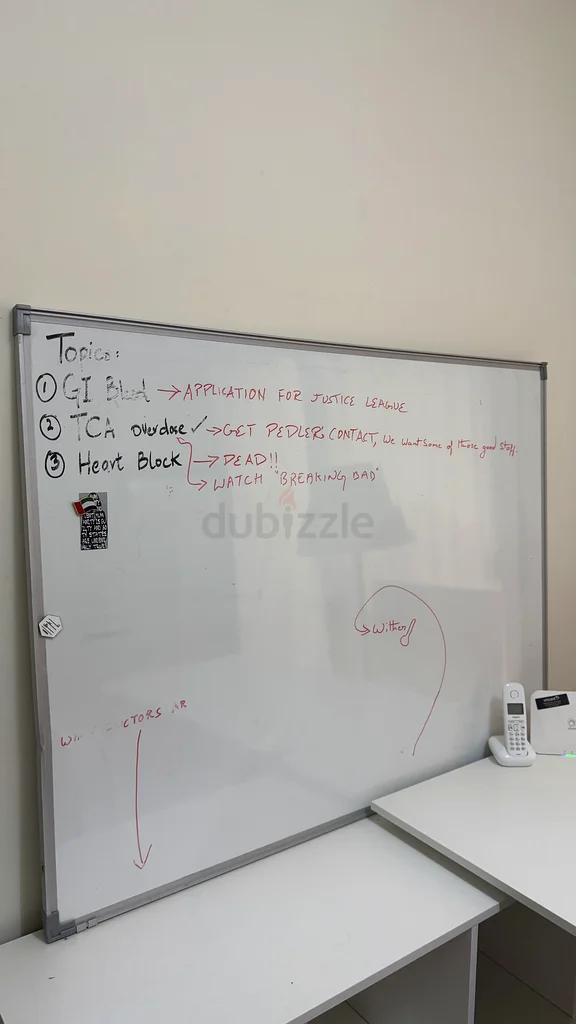 Topics:
① GI Bleed → APPLICATION FOR JUSTICE LEAGUE
② TCA overdose ✓ → GET PEDLERS CONTACT, We want some of those good stuff.
③ Heart Block → DEAD!!
→ WATCH "BREAKING BAD"
dubizzle